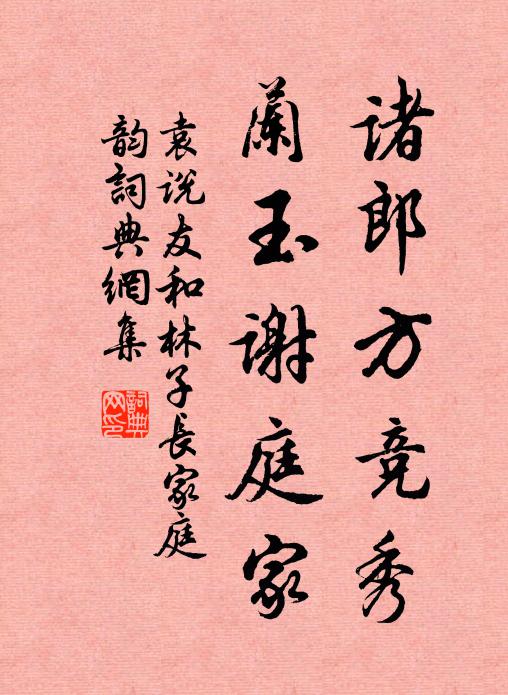 诸郎方竞秀
蘭玉谢庭家
袁说友和林子長家庭
韵詞典網集
詞典
网印